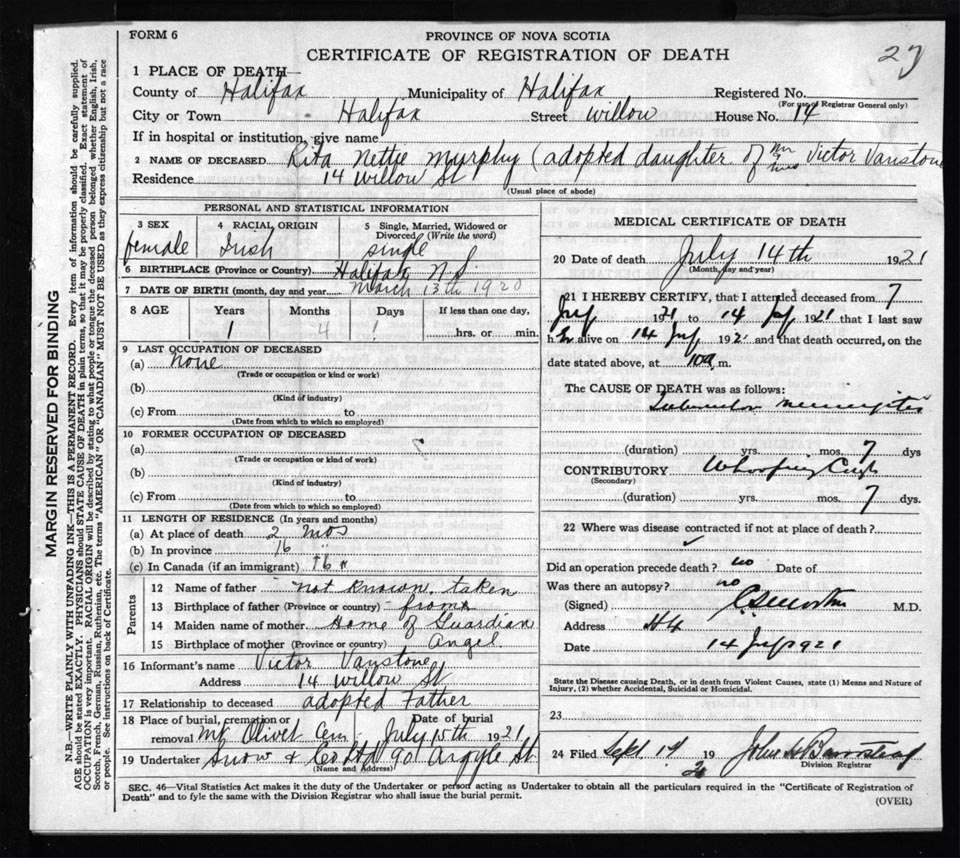 FORM 6
PROVINCE OF NOVA SCOTIA
CERTIFICATE OF REGISTRATION OF DEATH
27
1 PLACE OF DEATH—
County of Halifax Municipality of Halifax Registered No.
(For use of Registrar General only)
City or Town Halifax Street Willow House No. 14
If in hospital or institution, give name
2 NAME OF DECEASED Rita Nettye Murphy (adopted daughter of Mr Mrs Victor Vanstone
Residence 14 Willow St
(Usual place of abode)
PERSONAL AND STATISTICAL INFORMATION
3 SEX 4 RACIAL ORIGIN 5 Single, Married, Widowed or Divorced (Write the word)
female Irish single
6 BIRTHPLACE (Province or Country) Halifax N.S.
7 DATE OF BIRTH (month, day and year) March 13th 1920
8 AGE Years Months Days If less than one day,
1 4 1 hrs. or min.
9 LAST OCCUPATION OF DECEASED
(a) none
(Trade or occupation or kind or work)
(b)
(Kind of industry)
(c) From to
(Date from which to which so employed)
10 FORMER OCCUPATION OF DECEASED
(a)
(Trade or occupation or kind of work)
(b)
(Kind of industry)
(c) From to
(Date from which to which so employed)
11 LENGTH OF RESIDENCE (In years and months)
(a) At place of death 2 mos
(b) In province 16 "
(c) In Canada (if an immigrant) 16 "
Parents
12 Name of father not known. taken
13 Birthplace of father (Province or country) from
14 Maiden name of mother Home of Guardian
15 Birthplace of mother (Province or country) Angel.
16 Informant's name Victor Vanstone
Address 14 Willow St
17 Relationship to deceased adopted Father
18 Place of burial, cremation or removal Mt Olivet Cem. Date of burial July 15th 1921
19 Undertaker Snow & Co Ltd 90 Argyle St.
(Name and Address)
MEDICAL CERTIFICATE OF DEATH
20 Date of death July 14th 1921
(Month, day and year)
21 I HEREBY CERTIFY, that I attended deceased from 7
July 1921 to 14 July 1921 that I last saw
h alive on 14 July 1921 and that death occurred, on
date stated above, at 10 a m.
The CAUSE OF DEATH was as follows:
Tubercular meningitis
(duration) yrs. mos. 7 dys
CONTRIBUTORY Whooping Cough
(Secondary)
(duration) yrs. mos. 7 dys.
22 Where was disease contracted if not at place of death?
Did an operation precede death? no Date of
Was there an autopsy? no
(Signed) M.D.
Address
Date 14 July 1921
State the Disease causing Death, or in death from Violent Causes, state (1) Means and Nature of
Injury, (2) whether Accidental, Suicidal or Homicidal.
23
24 Filed Sept. 19 21 John H Barnstead
Division Registrar
SEC. 46—Vital Statistics Act makes it the duty of the Undertaker or person acting as Undertaker to obtain all the particulars required in the "Certificate of Registration of
Death" and to fyle the same with the Division Registrar who shall issue the burial permit.
(OVER)
MARGIN RESERVED FOR BINDING
N.B.—WRITE PLAINLY WITH UNFADING INK—THIS IS A PERMANENT RECORD. Every item of information should be carefully supplied.
AGE should be stated EXACTLY. PHYSICIANS should STATE CAUSE OF DEATH in plain terms, so that it may be properly classified. Exact statement of
OCCUPATION is very important. RACIAL ORIGIN will be described by stating to what people or tongue the deceased person belonged whether English, Irish,
Scotch, French, German, Russian, Ruthenian, etc. The terms "AMERICAN" OR "CANADIAN" MUST NOT BE USED as they express citizenship but not a race
or people. See instructions on back of Certificate.